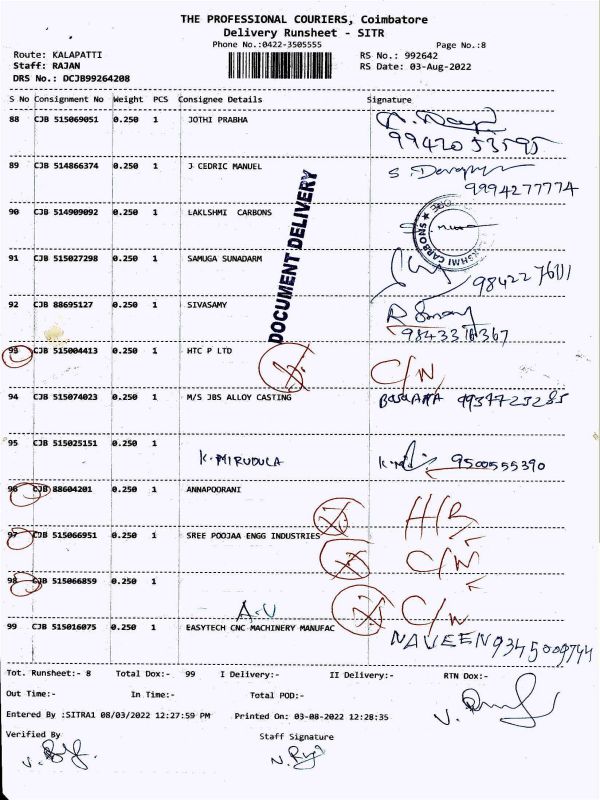 THE PROFESSIONAL COURIERS, Coimbatore
Delivery Runsheet - SITR
Phone No.:0422-3505555 Page No.:8
Route: KALAPATTI RS No.: 992642
Staff: RAJAN RS Date: 03-Aug-2022
DRS No.: DCJB99264208
S No Consignment No Weight PCS Consignee Details Signature
88 CJB 515069051 0.250 1 JOTHI PRABHA
9942053595
89 CJB 514866374 0.250 1 J CEDRIC MANUEL
9994277774
90 CJB 514909092 0.250 1 LAKLSHMI CARBONS
DOCUMENT DELIVERY
91 CJB 515027298 0.250 1 SAMUGA SUNADARM
92 CJB 88695127 0.250 1 SIVASAMY
93 CJB 515004413 0.250 1 HTC P LTD C/N
94 CJB 515074023 0.250 1 M/S JBS ALLOY CASTING
95 CJB 515025151 0.250 1
K. MIRUDULA 9500555390
96 CJB 88604201 0.250 1 ANNAPOORANI
H/B
97 CJB 515066951 0.250 1 SREE POOJAA ENGG INDUSTRIES
C/N
98 CJB 515066859 0.250 1
A.V C/N
99 CJB 515016075 0.250 1 EASYTECH CNC MACHINERY MANUFAC NAVEEN 9345009744
Tot. Runsheet:- 8 Total Dox:- 99 I Delivery:- II Delivery:- RTN Dox:-
Out Time:- In Time:- Total POD:-
Entered By :SITRA1 08/03/2022 12:27:59 PM Printed On: 03-08-2022 12:28:35
Verified By Staff Signature